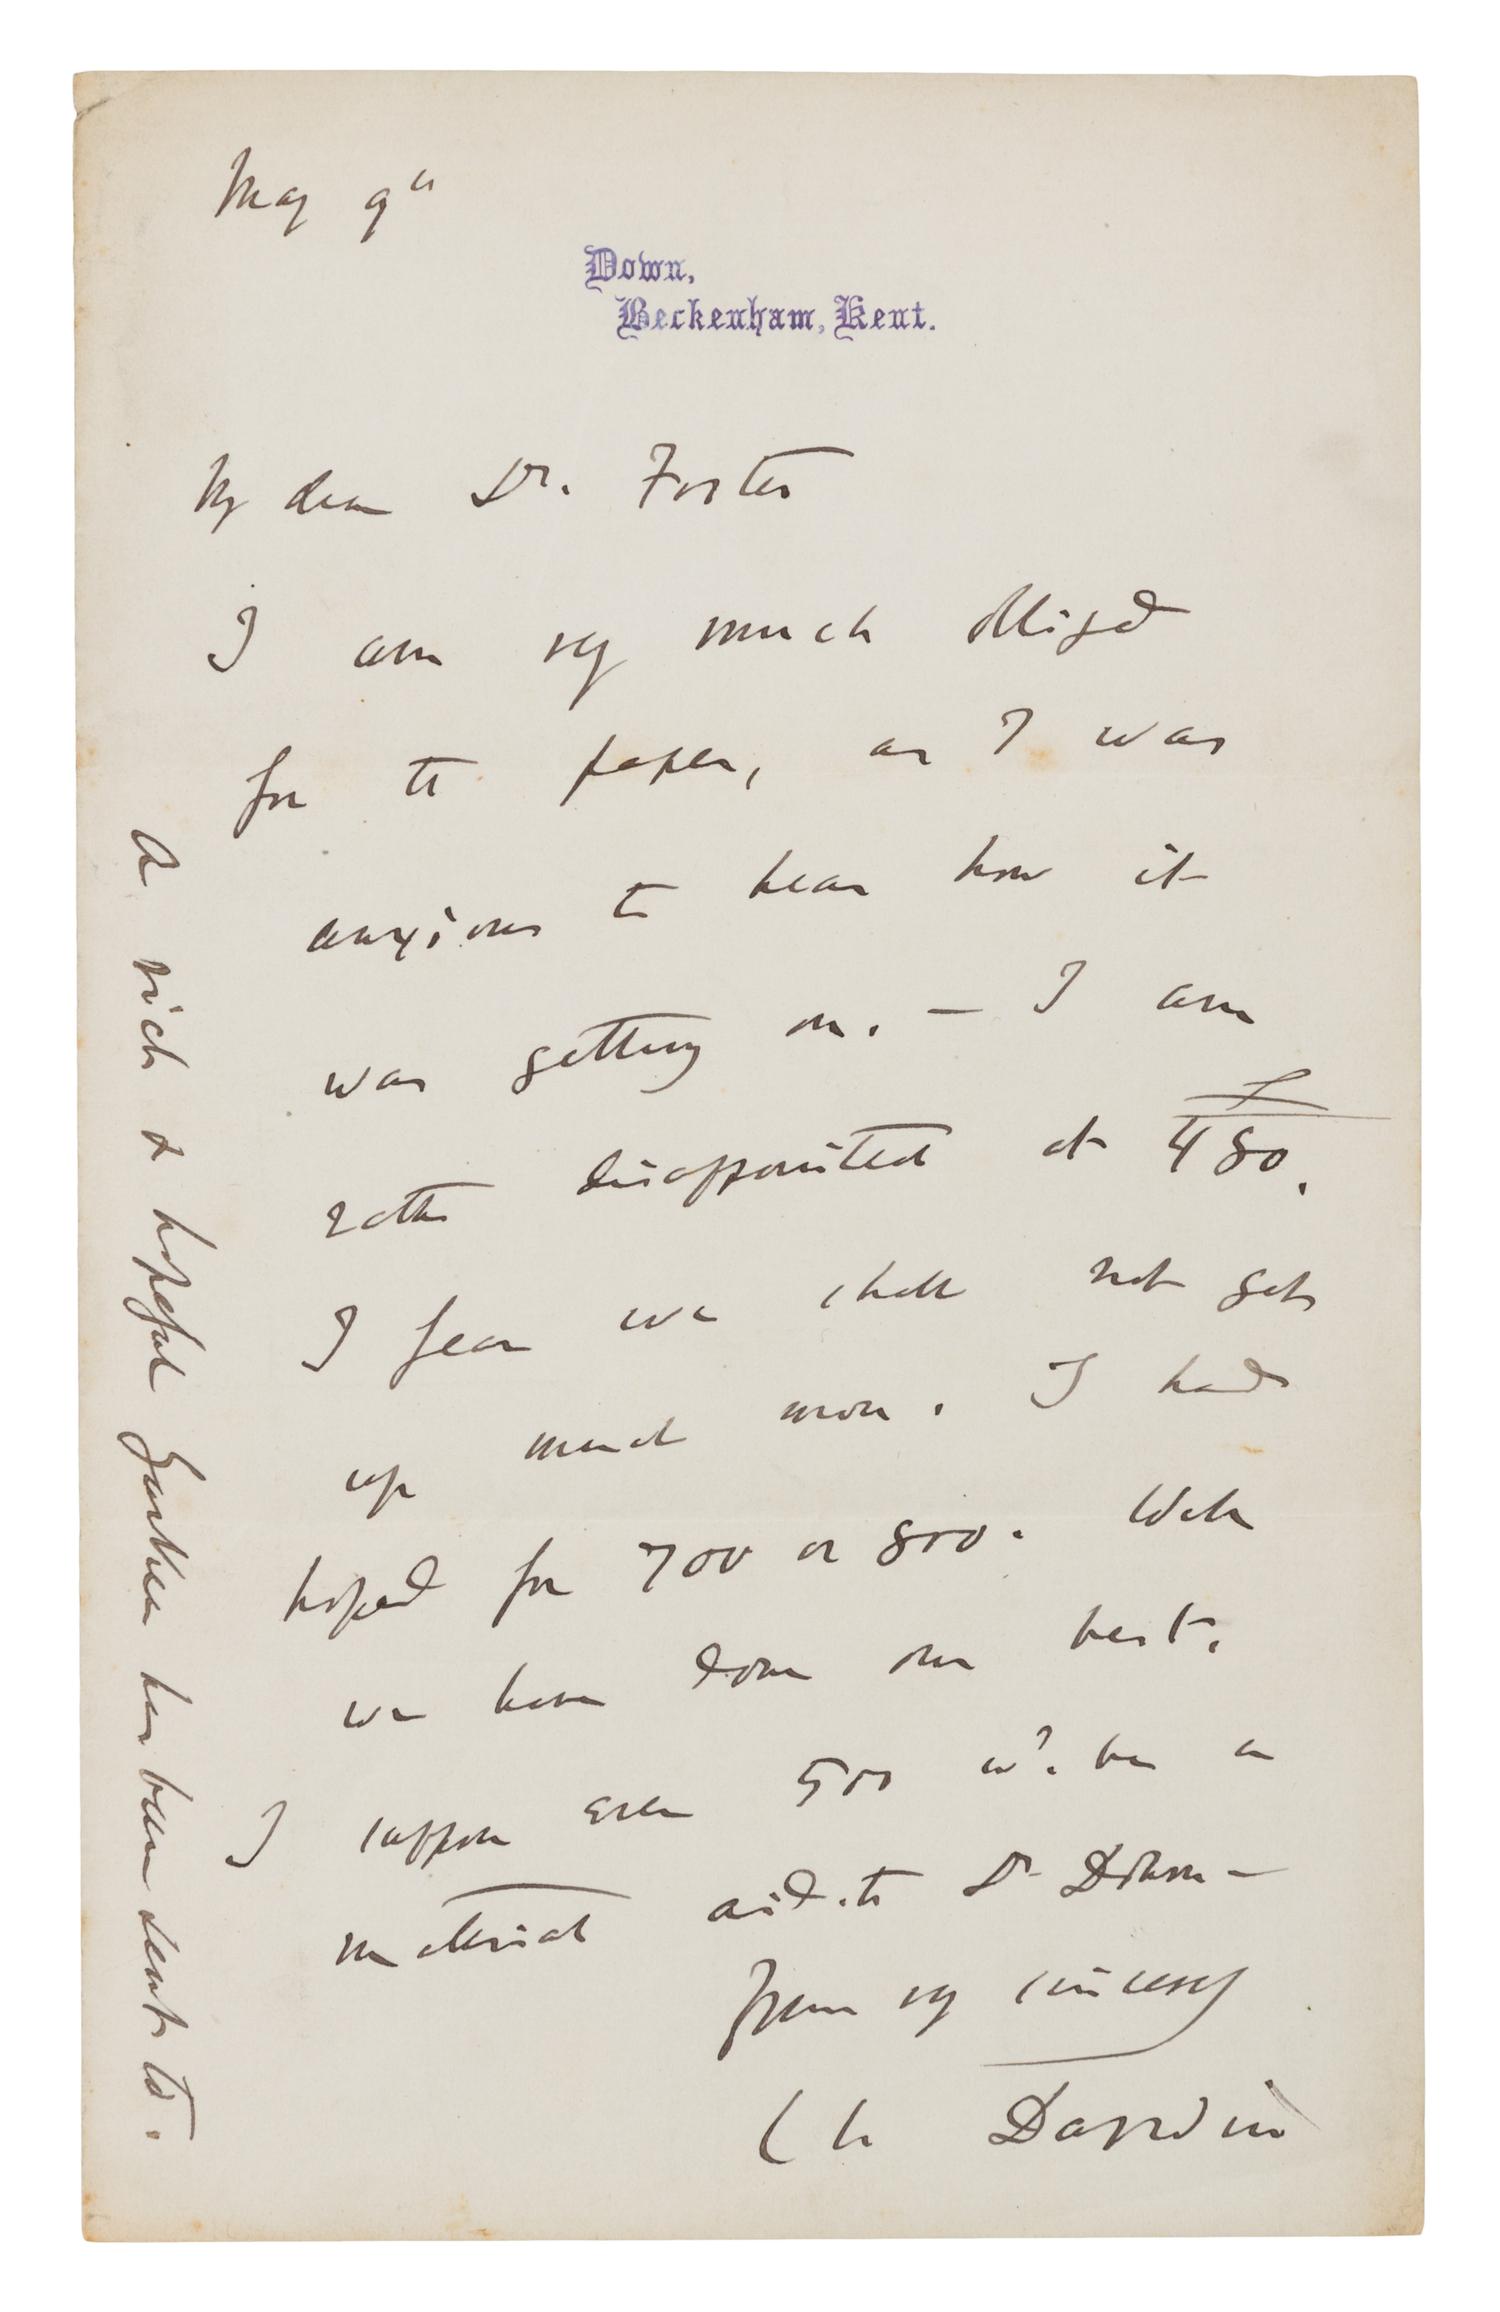 May 9th
Down,
Beckenham, Kent.
My dear Dr. Foster
I am very much obliged
for the paper, as I was
anxious to hear how it
was getting on. — I am
rather disappointed at £480.
I fear we shall not get
up much more. I had
hoped for 700 or 800. Well
we have done our best.
I suppose even 500 wd. be a
material aid to Dr Dohrn —
Yours very sincerely
Ch Darwin
A rich & hopeful Yankee has been sent to.